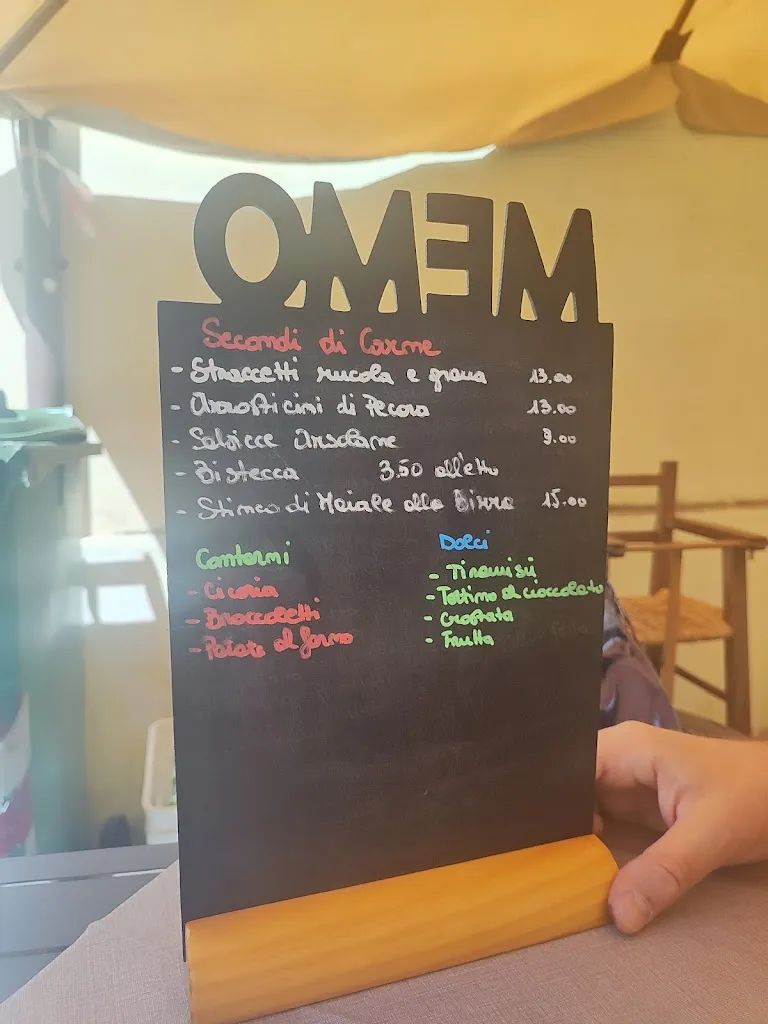 MEMO
Secondi di Carne
- Straccetti rucola e grana 13.00
- Arrosticini di Pecora 13.00
- Salsicce Arsolane 9.00
- Bistecca 3.50 all'etto
- Stinco di Maiale alla Birra 15.00
Contorni
- Cicoria
- Broccoletti
- Patate al forno
Dolci
- Tiramisù
- Tortino al cioccolato
- Crostata
- Frutta